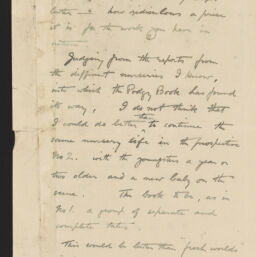 letter — how ridiculous a price
it is for the work you have in
Judging from the reports from
the different nurseries I know,
into which the Podgy Book has found
its way, I do not think that
I could do better than to continue the
same nursery life in the prospective
No 2. with the youngsters a year or
two older and a new baby on the
scene. The book to be, as in
No 1. a group of separate and
complete tales.
This would be better than "fresh worlds"